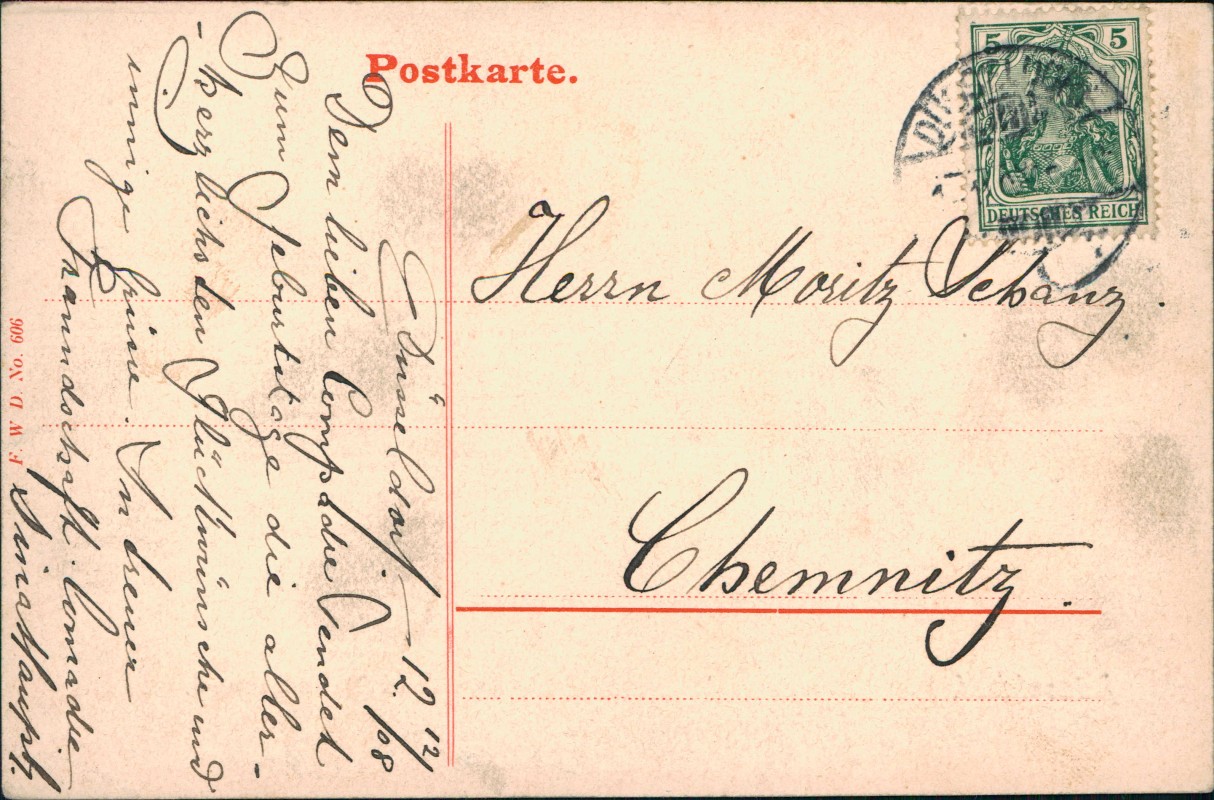 Postkarte.
5 5
DEUTSCHES REICH
Düsseldorf 12/12 08
Dem lieben Compadre sendet
Zum Geburtstage die aller-
-herzlichsten Glückwünsche und
innige Grüsse. In treuer
Freundschaft Comadre
Herrn Moritz Schanz.
Chemnitz.
F W D No. 606